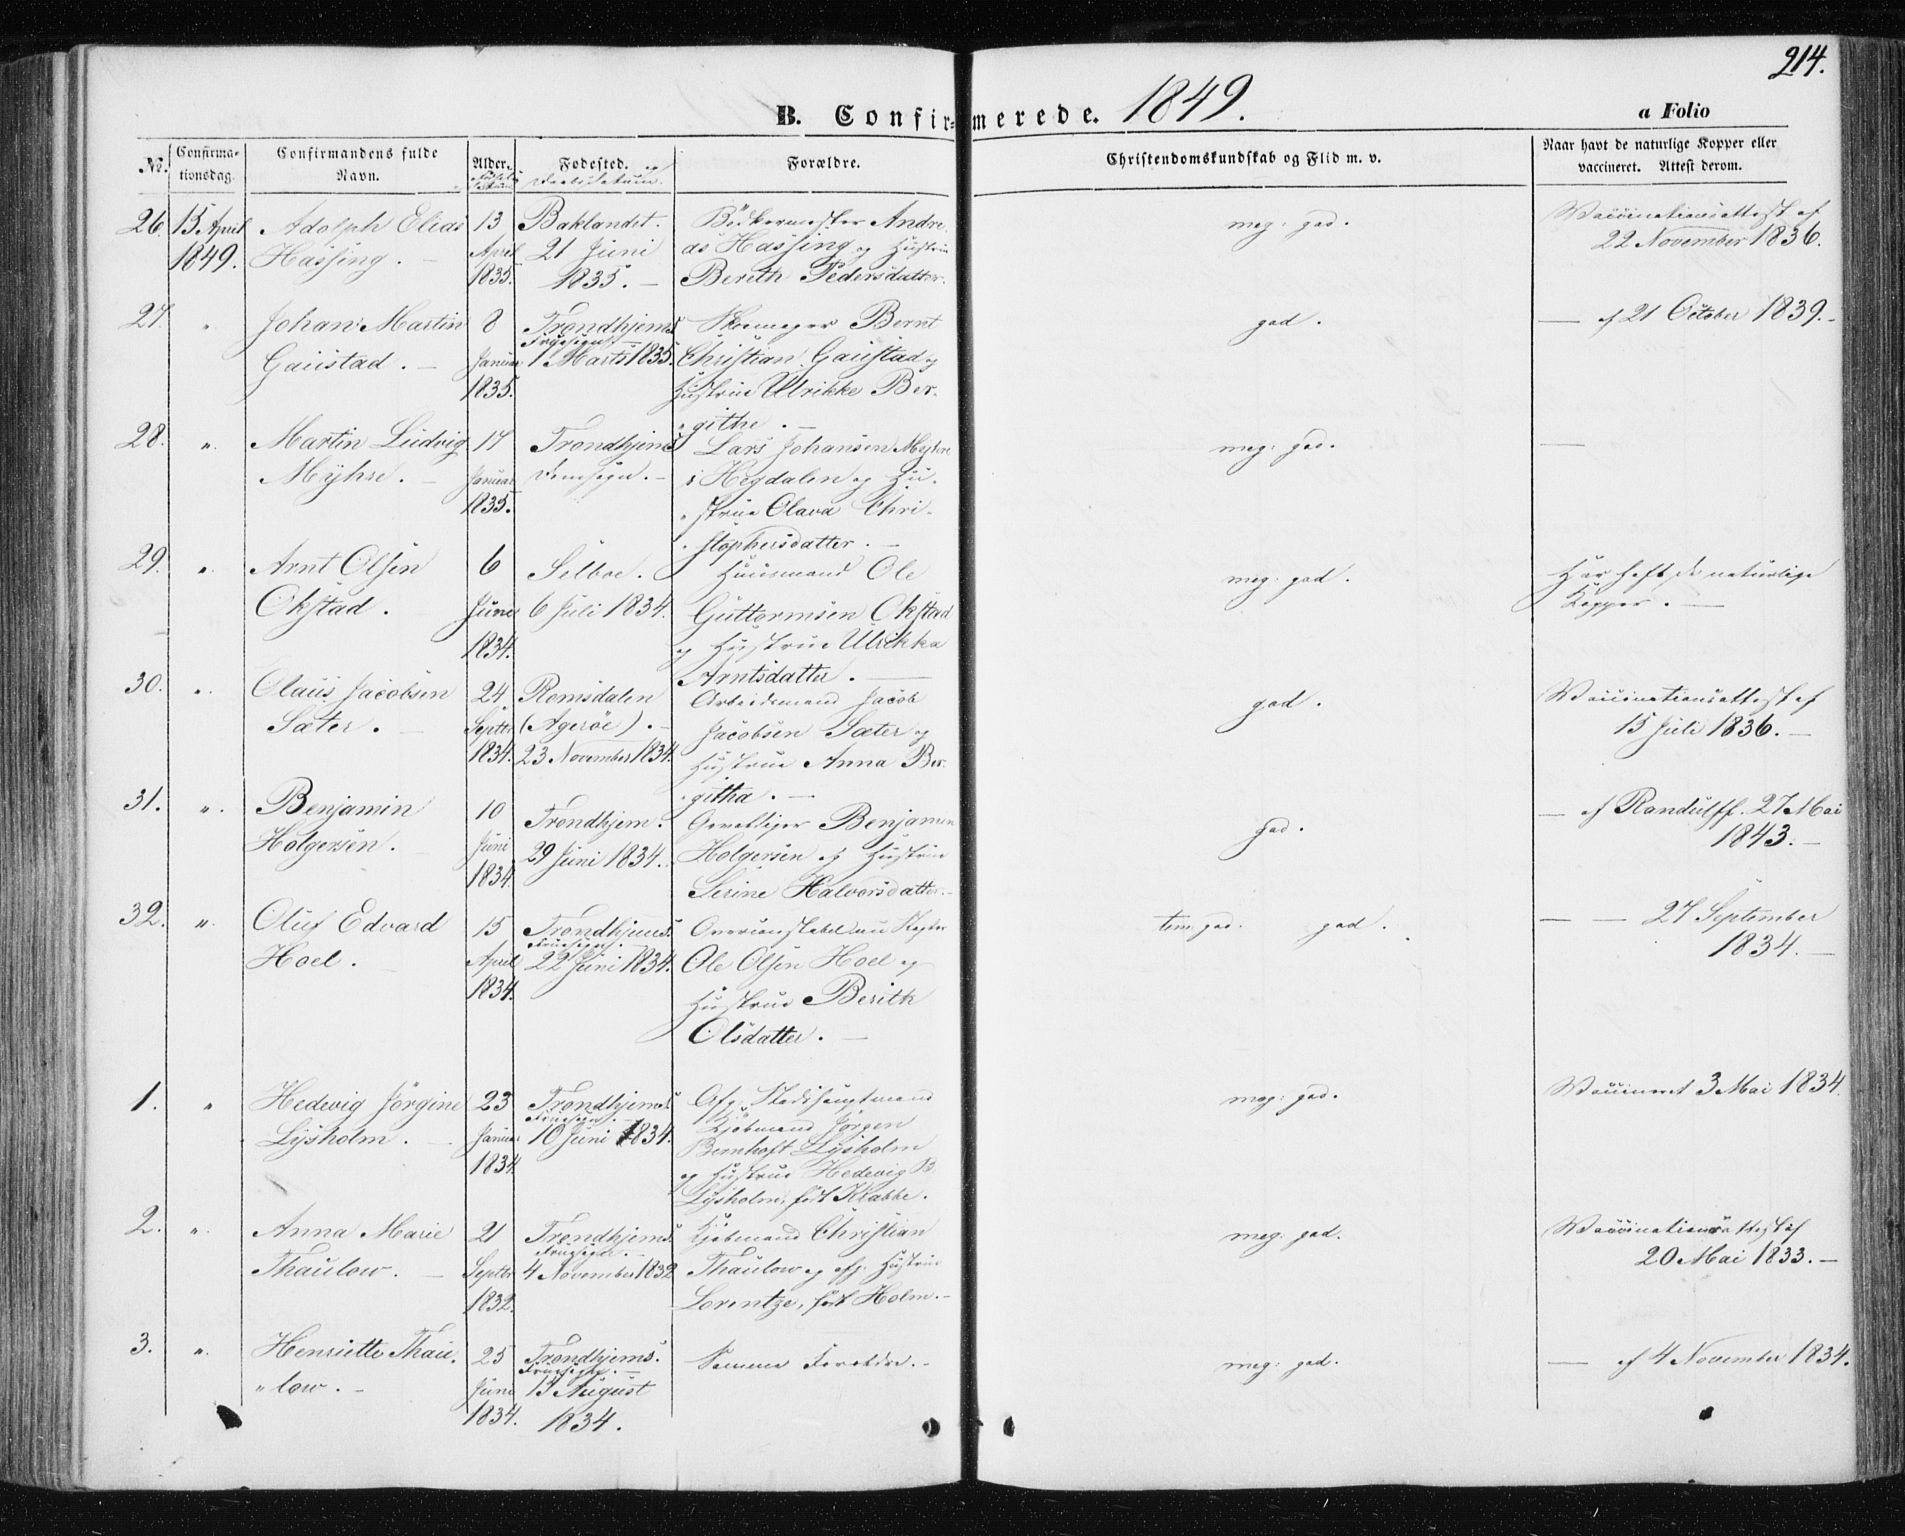 214.
B. Confirmerede. 1849.
a Folio
No. Confirmationsdag. Confirmandens fulde Navn. Alder. Fødsels Datum Fødested. og Daabsdatum. Forældre. Christendomskundskab og Flid m. v. Naar havt de naturlige Kopper eller vaccineret. Attest derom.
26. 15 April 1849.
Adolph Elias
Hassing. –
13
April
1835.
Baklandet.
21 Juni
1835. –
Bödkermester Andre
as Hassing og Hustrue
Bereth Pedersdatter.
meg: god.
Vaccinationsattest af
22 November 1836.
27. "
Johan Martin
Gaustad. –
8
Januar
1835.
Trondhjems
Fruesogn. –
1 Marts 1835.
Skomager Bernt
Christian Gaustad og
Hustrue Ulrikke Ber-
"githe. –
god.
— af 21 October 1839. –
28. "
Martin Ludvig
Myhre. –
17
Januar
1835.
Trondhjems
Domsogn. –
Lars Johansen Myhre
i Hegdalen og Hu-
"strue Olava Chri-
"stophersdatter. –
meg: god.
—
29. "
Arnt Olsen
Okstad.
6
Juni
1834.
Selboe.
6 Juli 1834.
Huusmand Ole
Guttormsen Okstad
og Hustrue Ulrikka
Arntsdatter. —
meg: god.
Har haft de naturlige
Kopper. —
30. "
Claus Jacobsen
Sæter. –
24
Septbr
1834.
Romsdalen
(Agerøe). –
23 November 1834.
Arbeidsmand Jacob
Jacobsen Sæter og
Hustrue Anna Ber-
"githa. –
god.
Vaccinationsattest af
15 Juli 1836. –
31. "
Benjamin
Holgersen. –
10
Juni
1834.
Trondhjem.
29 Juni 1834.
Gevaldiger Benjamin
Holgersen og Hustrue
Serine Halvorsdatter. –
god.
— af Randulff. 27 Mai
1843. –
32. "
Oluf Edvard
Hoel. –
15
April
1834.
Trondhjems.
Fruesogn. –
22 Juni 1834.
Ole Olsen Hoel og
Hustrue Berith
Olsdatter. –
tem: god. god.
— — 27 September
1834. –
1. "
Hedevig Jörgine
Lysholm. –
23
Januar
1834.
Trondhjems.
Fruesogn. –
10 Juni 1834.
Afg. Stadshauptmand
Kjöbmand Jörgen
Bernhoft Lysholm
og Hustrue Hedevig B.
Lysholm, født Krabbe.
meg: god.
Vaccineret 3 Mai 1834.
2. "
Anna Marie
Thaulow. –
21
Septbr
1832.
Trondhjems.
Fruesogn. –
4 November 1832
Kjöbmand Christian
Thaulow og afg. Hustrue
Lorentze, født Holm. –
meg: god.
Vaccinationsattest af
20 Mai 1833. –
3. "
Henriette Thau-
"low. –
25
Juni
1834.
Trondhjems.
Fruesogn. –
13 August
1834.
Samme Forældre. –
meg: god.
— af 4 November 1834.